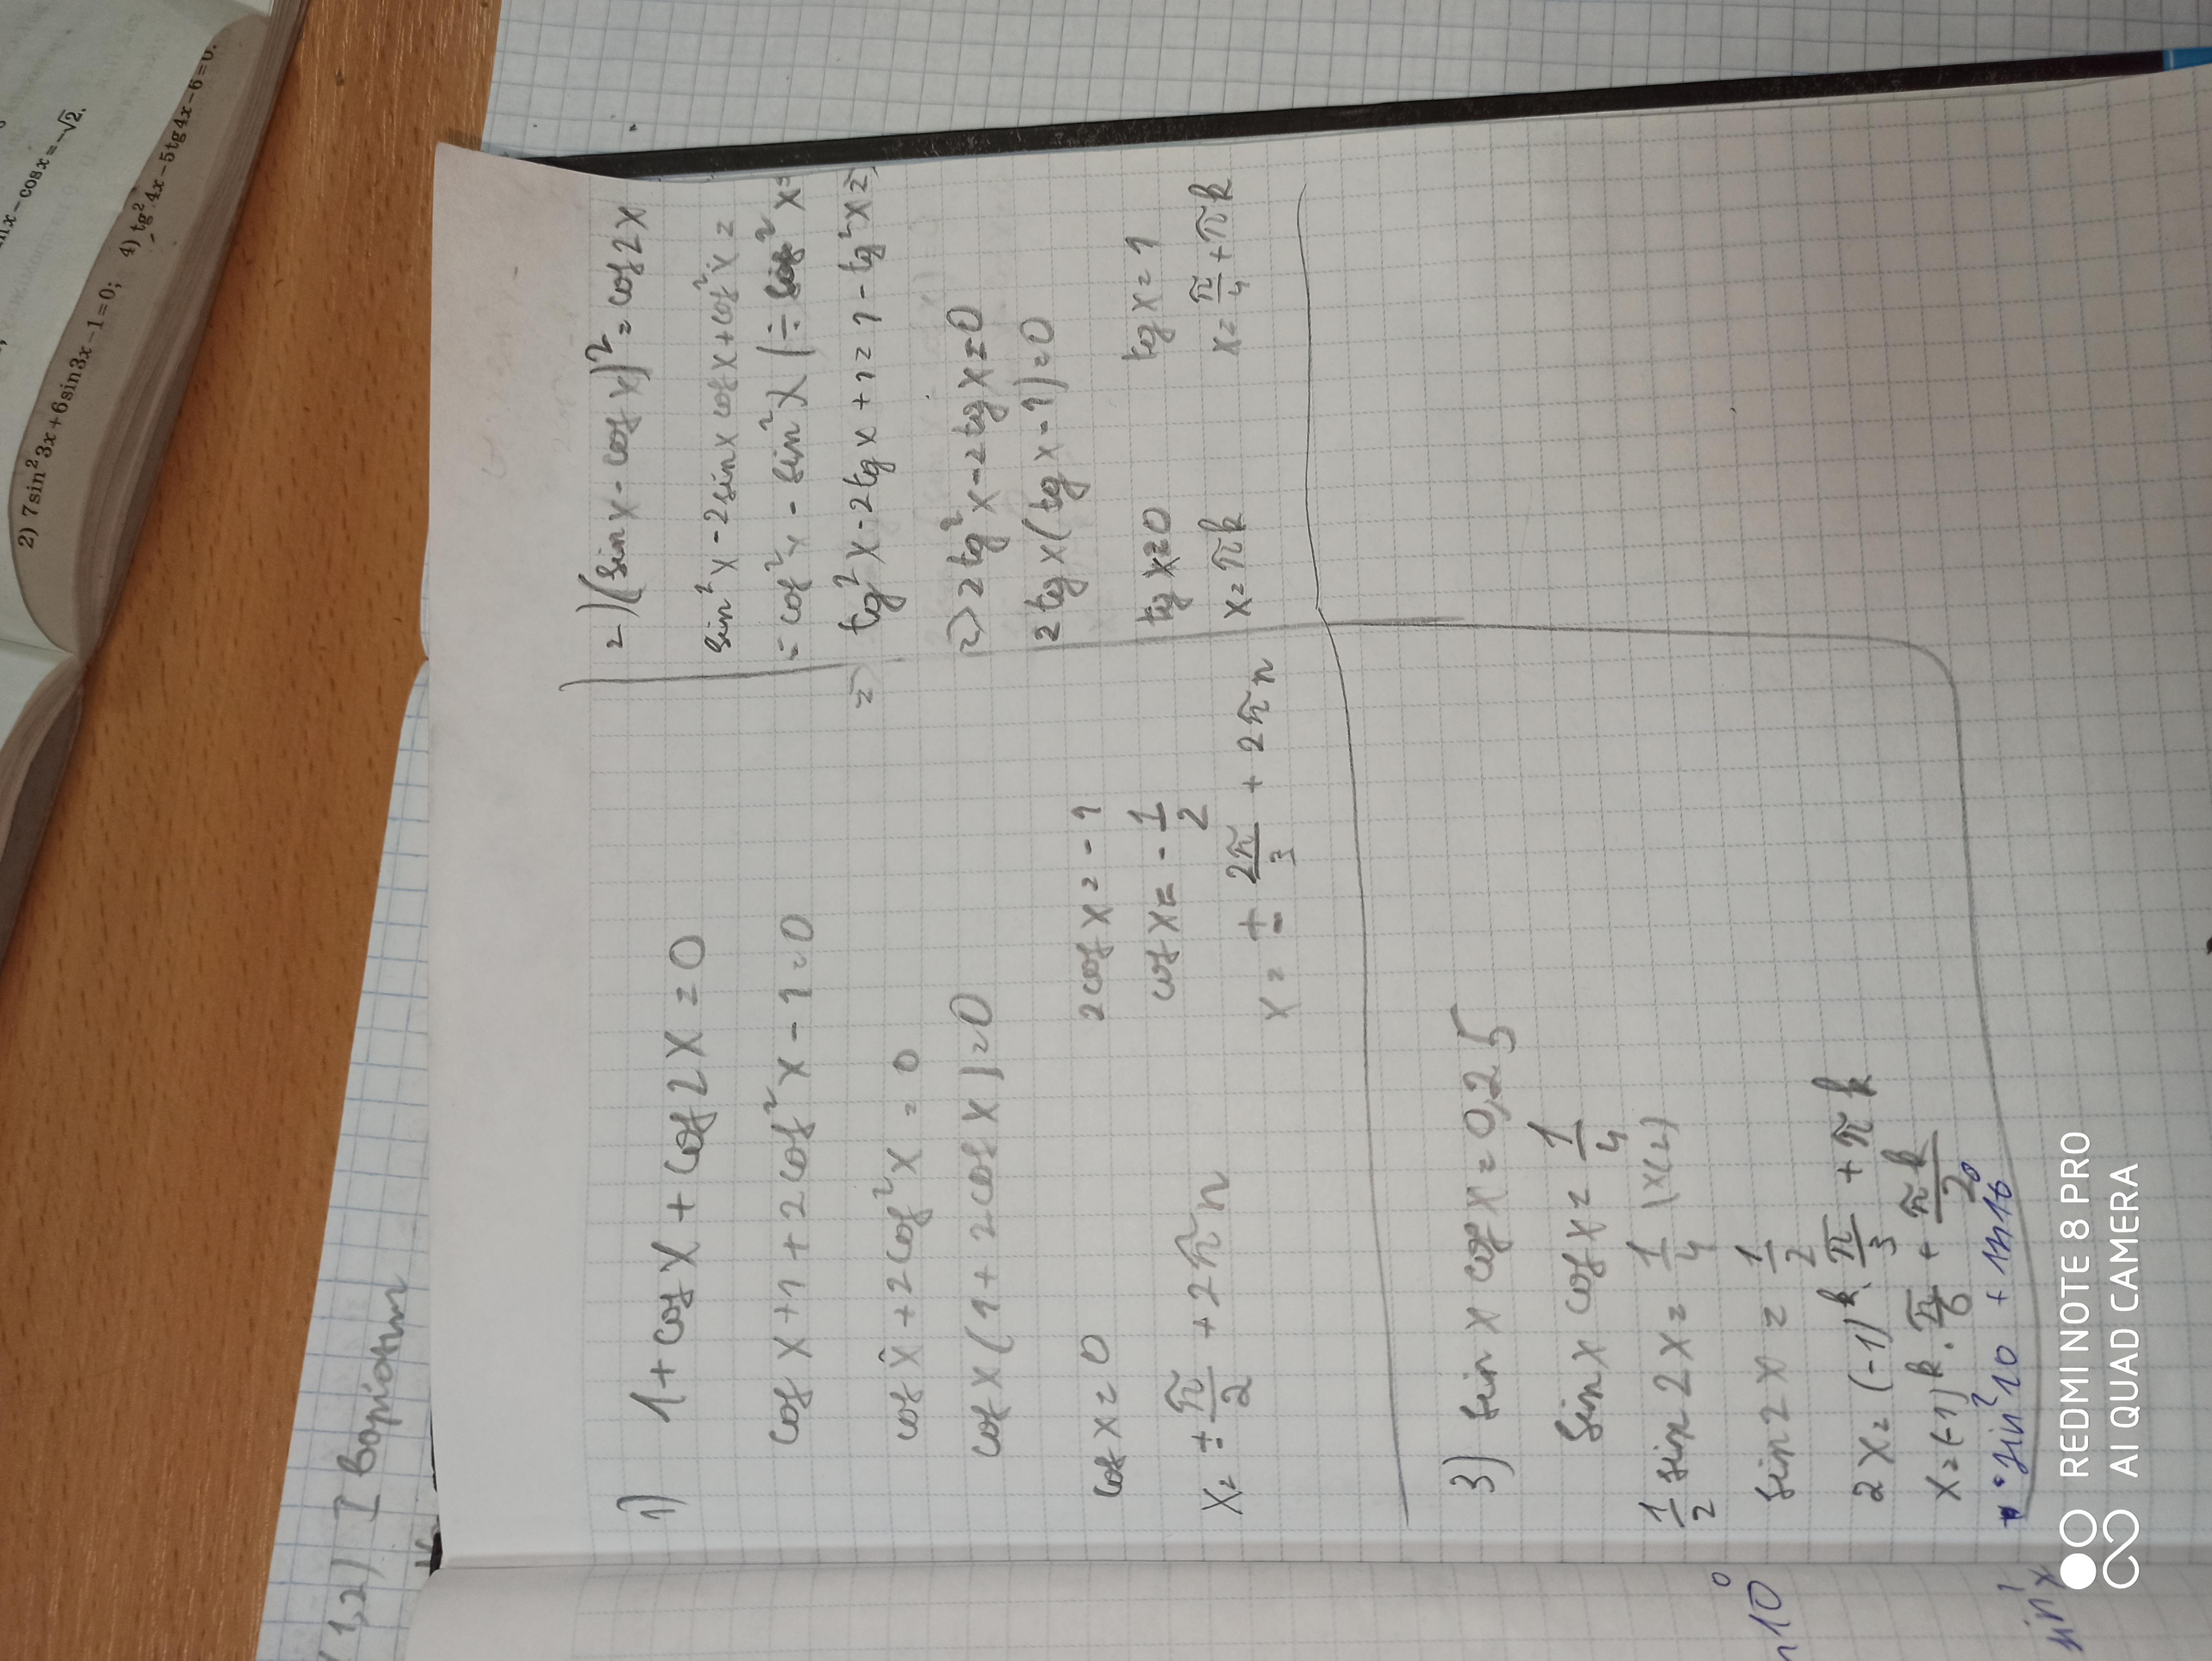 nx−cosx=−√2.
2) 7sin²3x+6sin3x−1=0; 4) tg²4x−5tg4x−6=0.
1,2) I варіант
1) 1+cosx+cos2x=0
cosx+1+2cos²x-1=0
cosx+2cos²x=0
cosx(1+2cosx)=0
cosx=0
x=±π/2+2πn
2cosx=-1
cosx=-1/2
x=±2π/3+2πn
2) (sinx-cosx)²=cos2x
sin²x-2sinxcosx+cos²x=
=cos²x-sin²x |÷cos²x=
=) tg²x-2tgx+1=1-tg²x=)
=) 2tg²x-2tgx=0
2tgx(tgx-1)=0
tgx=0
x=πk
tgx=1
x=π/4+πk
3) sinxcosx=0,25
sinxcosx=1/4
1/2sin2x=1/4 |×(2)
sin2x=1/2
2x=(-1)^k·π/3+πk
x=(-1)^k·π/6+πk/2
sin²10+
10°
REDMI NOTE 8 PRO
AI QUAD CAMERA